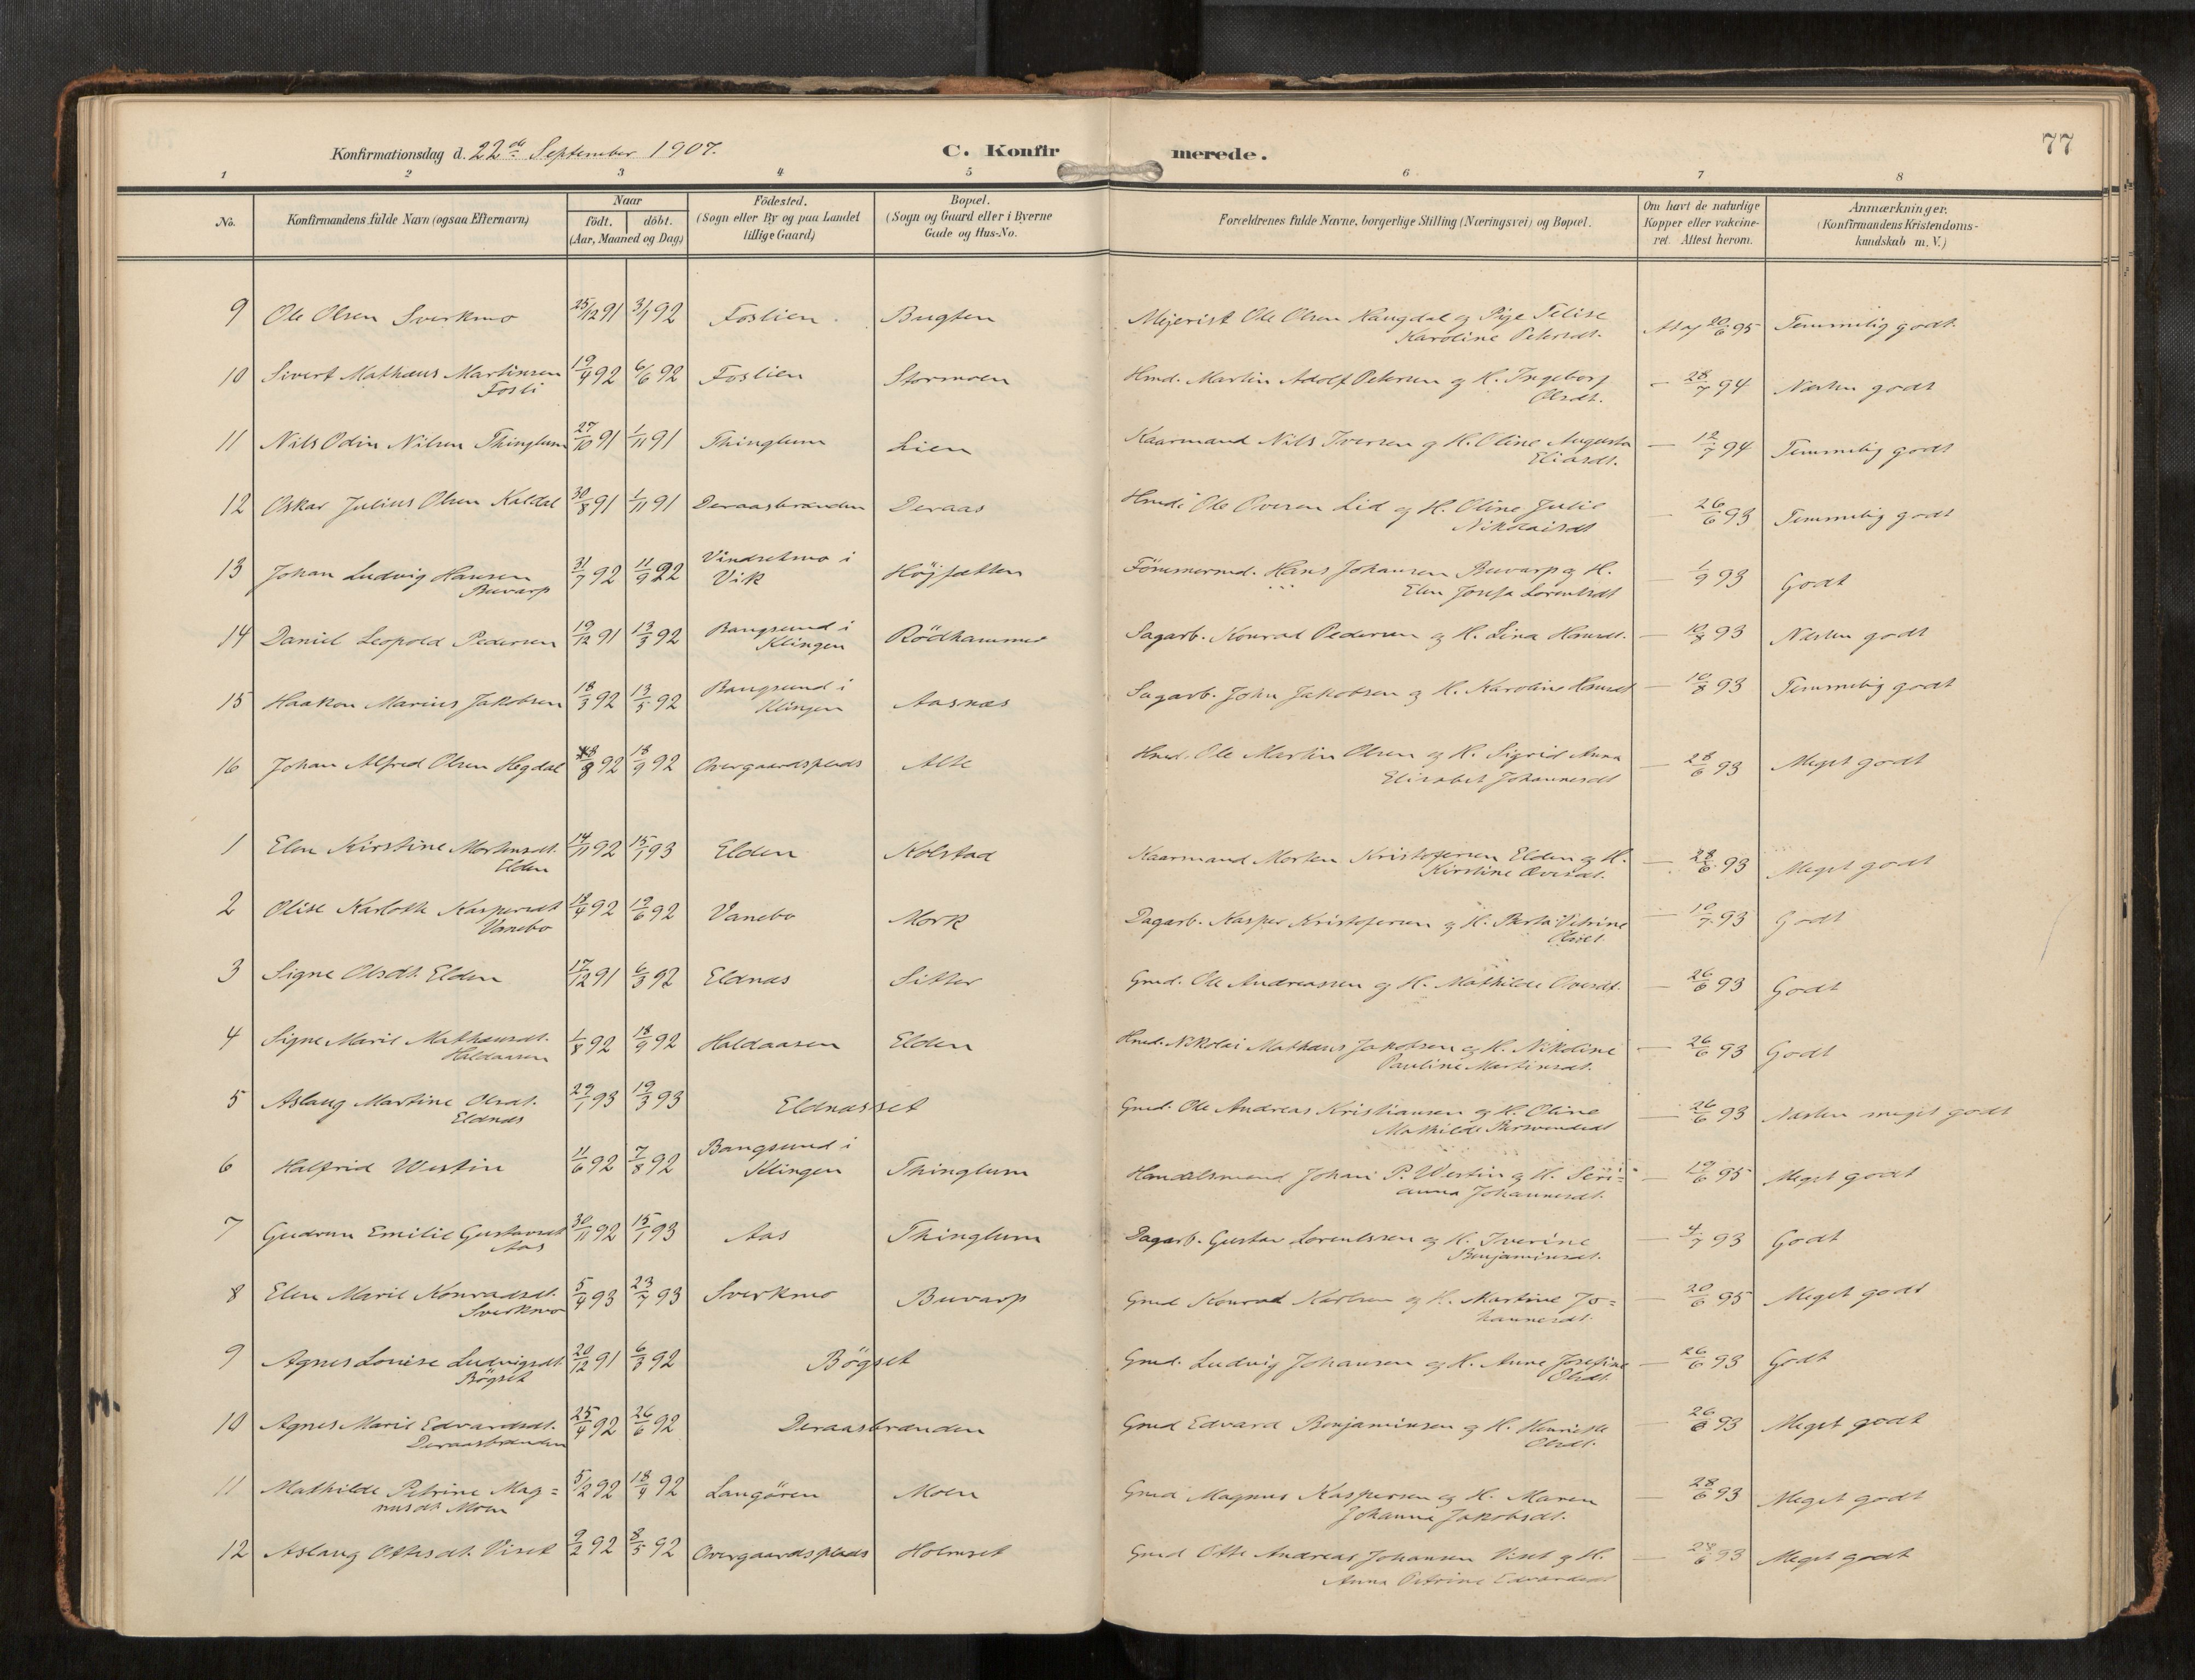 77
Konfirmationsdag d. 22de September 1907.
C. Konfirmerede.
1 2 3 4 5 6 7 8
No.
Konfirmandens fulde Navn (ogsaa Efternavn)
Naar
født. døbt.
(Aar, Maaned og Dag)
Fødested.
(Sogn eller By og paa Landet
tillige Gaard)
Bopæl.
(Sogn og Gaard eller i Byerne
Gade og Hus-No.
Forældrenes fulde Navne, borgerlige Stilling (Næringsvei) og Bopæl.
Om havt de naturlige
Kopper eller vakcine-
ret. Attest herom.
Anmærkninger.
(Konfirmandens Kristendoms-
kundskab m. V.)
9 Ole Olsen Sverkmo 25/12 91 3/1 92 Foslien Bugten Mejerist Ole Olsen Haugdal og Pige Telise 20/6 95 Temmelig godt.
Karoline Petersdt.
10 Sivert Mathæus Martinsen 19/4 92 6/6 92 Foslien Stormoen Hmd. Martin Adolf Petersen og H. Ingeborg — 28/7 94 Næsten godt
Fosli Olsdt.
11 Nils Odin Nilsen Thinglum 27/10 91 1/11 91 Thinglum Lien Kaarmand Nils Iversen og H. Oline Augusta — 12/7 94 Temmelig godt
Eliasdt.
12 Oskar Julius Olsen Kaldal 30/8 91 1/11 91 Deraasbrænden Deraas Hmd. Ole Ovesen Lid og H. Oline Julie — 26/6 93 Temmelig godt
Nikolaisdt
13 Johan Ludvig Hansen 31/7 92 11/9 92 Vindsetmo i Høgsetten Tømmermd. Hans Johansen Buvarp og H. — 1/9 93 Godt
Buvarp Vik Elen Josefa Lorentsdt
14 Daniel Leopold Pedersen 19/12 91 13/3 92 Bangsund i Rødhammer Sagarb. Konrad Pedersen og H. Lina Hansdt. — 10/8 93 Næsten godt
Klingen
15 Haakon Marius Jakobsen 18/3 92 13/5 92 Bangsund i Aasnæs Sagarb. John Jakobsen og H. Karoline Hansdt — 10/8 93 Temmelig godt
Klingen
16 Johan Alfred Olsen Hegdal 8 92 18/9 92 Overgaardsplads Alte Hmd. Ole Martin Olsen og H. Sigrid Anna — 28/6 93 Meget godt
Elisabet Johannesdt
1 Elen Kirstine Mortensdt. 14/11 92 15/1 93 Elden Kolstad Kaarmand Morten Kristofersen Elden og H. — 28/6 93 Meget godt
Elden Kirstine Ovesdt.
2 Olise Karlotte Kaspersdt 18/4 92 19/6 92 Vanebo Mork Dagarb. Kasper Kristofersen og H. Berta Petrine — 10/7 93 Godt
Vanebo Olsdt
3 Signe Olsdt. Elden 17/12 91 6/3 92 Eldnæs Sitter Gmd. Ole Andreassen og H. Mathilde Ovesdt. — 26/6 93 Godt
4 Signe Marie Mathæusdt. 1/8 92 18/9 92 Haldaasen Elden Hmd. Nikolai Mathæus Jakobsen og H. Nikoline — 26/6 93 Godt
Haldaasen Pauline Martinsdt.
5 Aslaug Martine Olsdt. 29/1 93 19/3 93 Eldnæsset Gmd. Ole Andreas Kristiansen og H. Oline — 26/6 93 Næsten meget godt
Eldnæs Mathilde
6 Halfrid Westin 11/6 92 7/8 92 Bangsund i Thinglum Handelsmand Johan P. Westin og H. Seri= — 19/6 95 Meget godt
Klingen anna Johannesdt.
7 Gudrun Emilie Gustavsdt 30/11 92 15/1 93 Aas Thinglum Dagarb. Gustav Lorentssen og H. Iverine — 4/7 93 Godt
Aas Benjaminsdt.
8 Elen Marie Konradsdt. 5/4 93 23/7 93 Sverkmo Buvarp Gmd Konrad Karlsen og H. Martine Jo= — 20/6 95 Meget godt
Sverkmo hannesdt.
9 Agnes Lovise Ludvigsdt. 20/12 91 6/3 92 Bøgset Gmd. Ludvig Johansen og H. Anne Josefine — 26/6 93 Godt
Bøgset Olsdt.
10 Agnes Marie Edvardsdt. 25/4 92 26/6 92 Deraasbrænden Gmd Edvard Benjaminsen og H. Henriette — 26/6 93 Meget godt
Deraasbrænden Olsdt.
11 Mathilde Petrine Mag= 5/2 92 18/4 92 Langøren Moen Gmd Magnus Kaspersen og H. Maren — 28/6 93 Meget godt
nusdt Moen Johanna Jakobsdt.
12 Aslaug Ottesdt. Viset 9/2 92 8/5 92 Overgaardsplads Holmset Gmd Otte Andreas Johansen Viset og H. — 28/6 93 Meget godt
Anna Petrine Edvardsdt